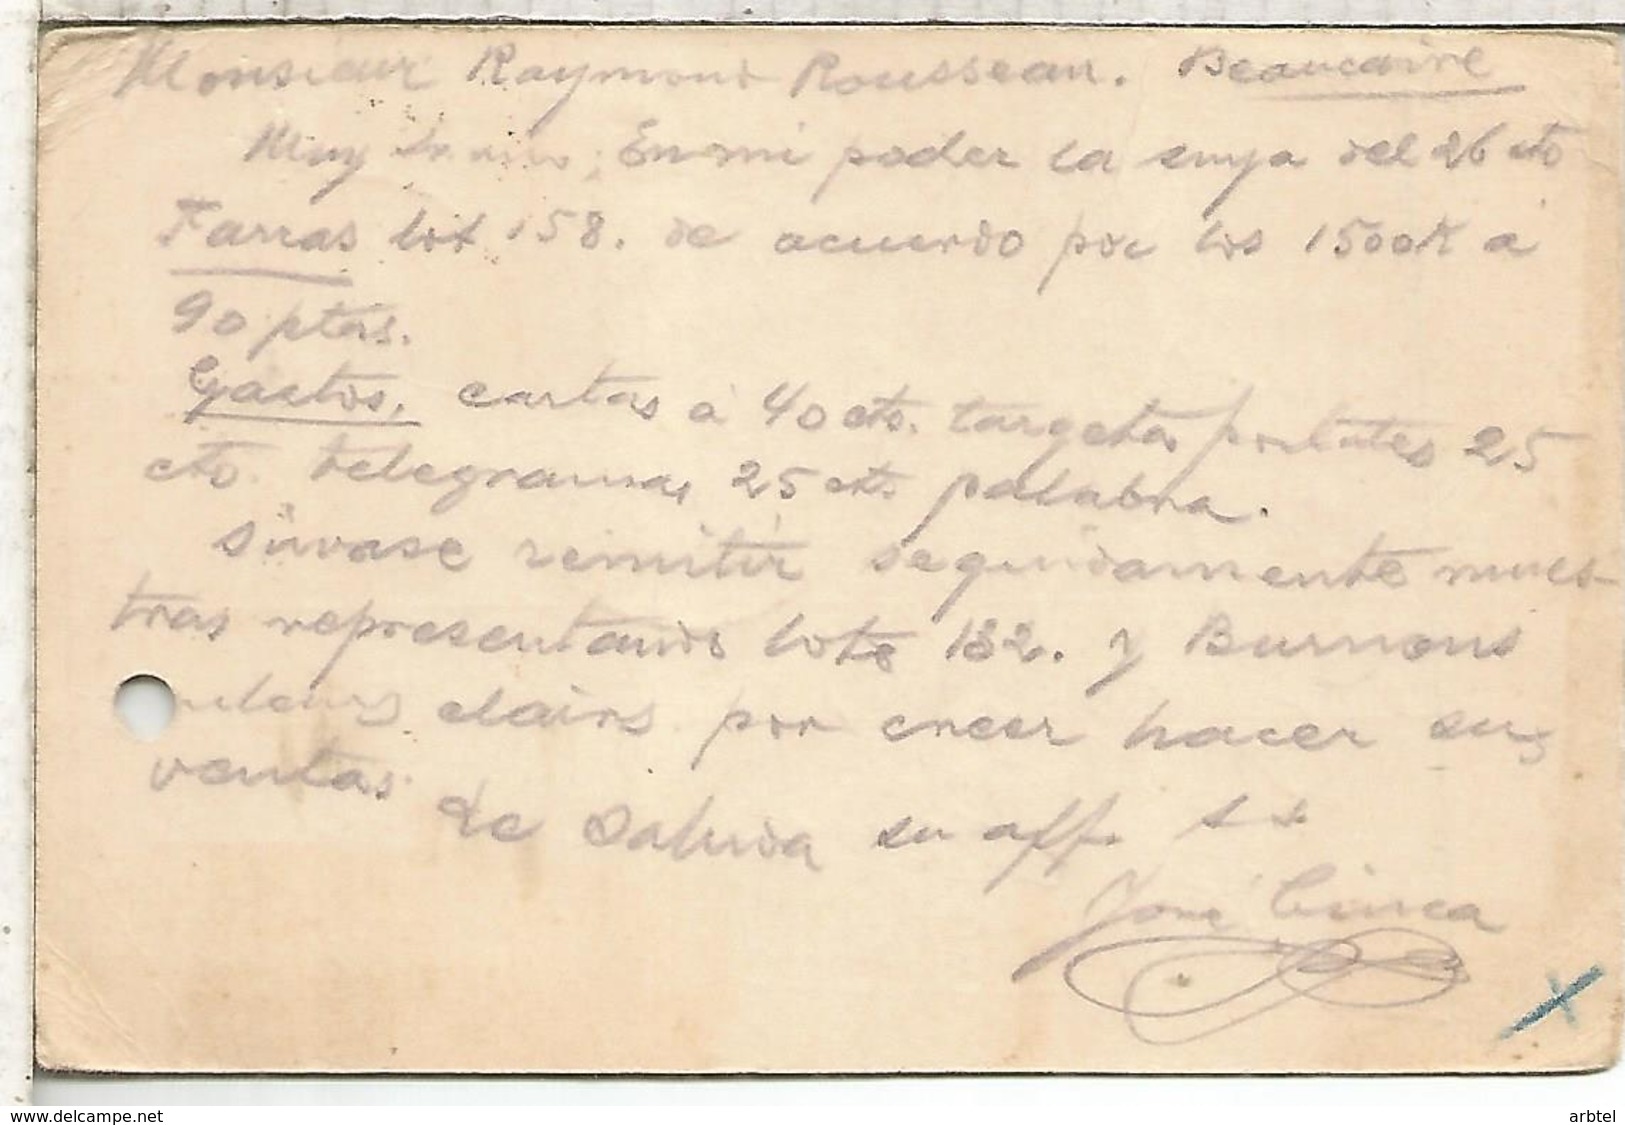 Monsieur Raymond Rousseau. Beaucaire
Muy Sr mio, En mi poder la suya del 26 cto
Farras lot 158. de acuerdo por los 1500K a
90 ptas.
Gastos. cartas a 40 cts. targetas postales 25
cts. telegramas 25 cts palabra.
Sirvase remitir seguidamente mues-
tras representando lote 132. y Burnous
clairs por creer hacer sus
ventas.
Le Saluda su aff. s s
José Cinca
delcampe.net
arbtel